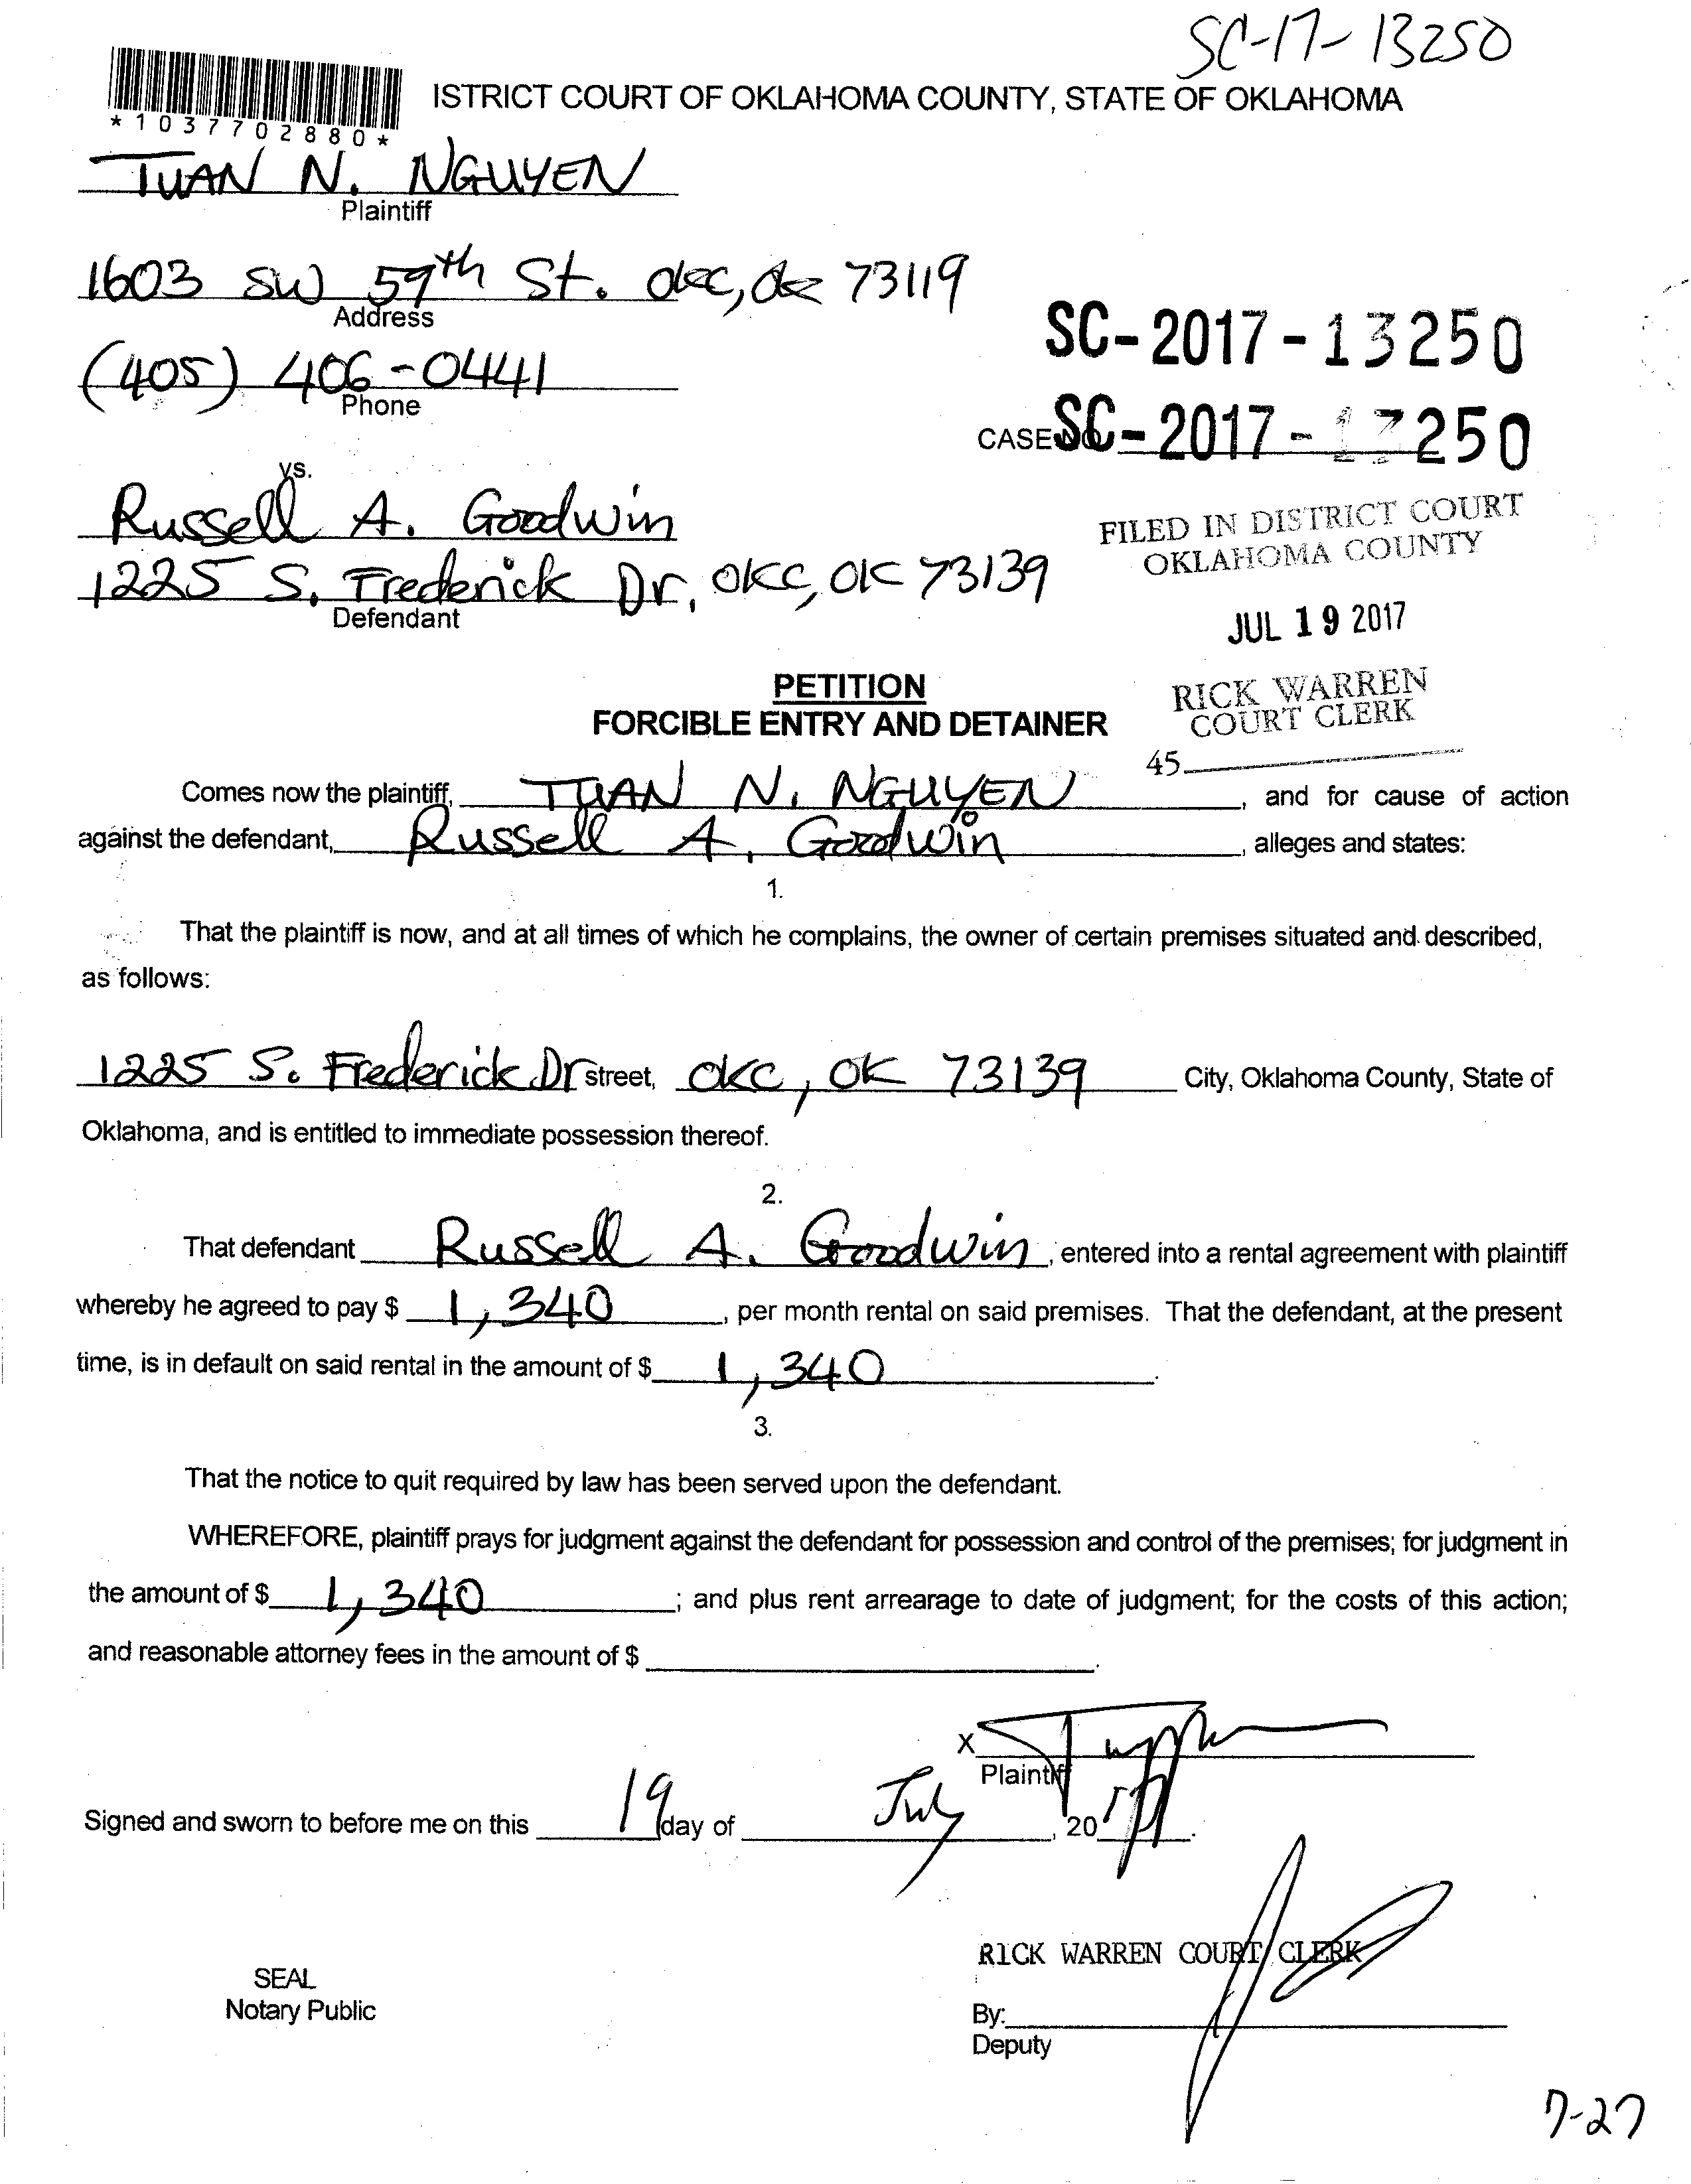 SC-17-13250
ISTRICT COURT OF OKLAHOMA COUNTY, STATE OF OKLAHOMA
*1037702880*
TUAN N. NGUYEN
Plaintiff
1603 SW 59th St. OKC, OK 73119
Address
SC-2017-13250
(405) 406-0441
Phone
CASE NO. SC-2017-13250
vs.
Russell A. Goodwin
FILED IN DISTRICT COURT
OKLAHOMA COUNTY
1225 S. Frederick Dr, OKC, OK 73139
Defendant
JUL 19 2017
PETITION
FORCIBLE ENTRY AND DETAINER
RICK WARREN
COURT CLERK
45
Comes now the plaintiff, TUAN N. NGUYEN, and for cause of action
against the defendant, Russell A. Goodwin, alleges and states:
1.
That the plaintiff is now, and at all times of which he complains, the owner of certain premises situated and described,
as follows:
1225 S. Frederick Dr street, OKC, OK 73139 City, Oklahoma County, State of
Oklahoma, and is entitled to immediate possession thereof.
2.
That defendant Russell A. Goodwin, entered into a rental agreement with plaintiff
whereby he agreed to pay $ 1,340, per month rental on said premises. That the defendant, at the present
time, is in default on said rental in the amount of $ 1,340.
3.
That the notice to quit required by law has been served upon the defendant.
WHEREFORE, plaintiff prays for judgment against the defendant for possession and control of the premises; for judgment in
the amount of $ 1,340; and plus rent arrearage to date of judgment; for the costs of this action;
and reasonable attorney fees in the amount of $ .
X
Plaintiff
Signed and sworn to before me on this 19 day of July, 20
RICK WARREN COURT CLERK
SEAL
Notary Public
By:
Deputy
7-27